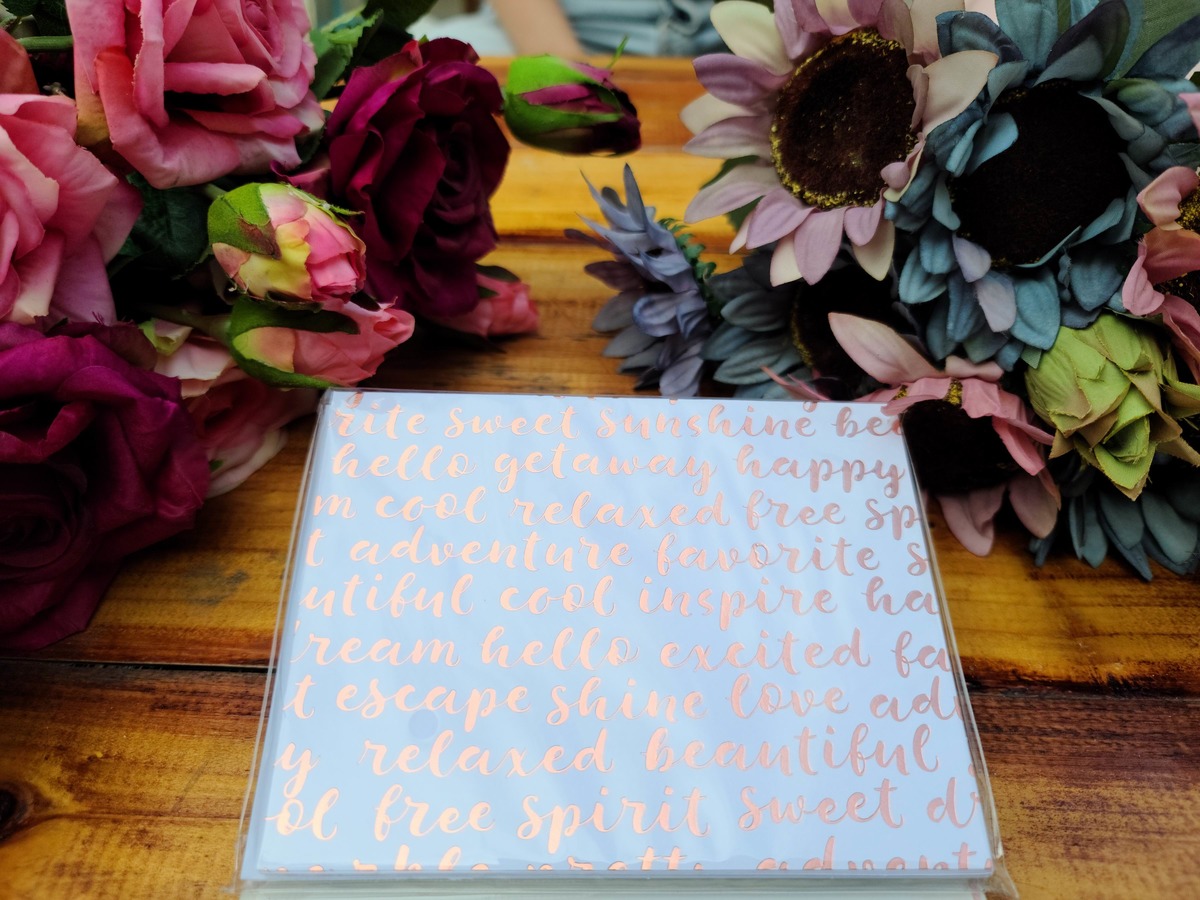 rite sweet sunshine bea
hello getaway happy
m cool relaxed free sp
t adventure favorite s
utiful cool inspire ha
ream hello excited fa
t escape shine love adv
y relaxed beautiful
ol free spirit sweet dr
pretty advent